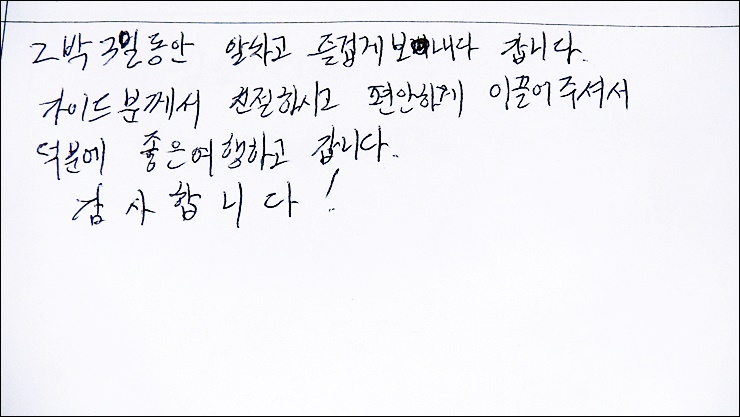 2박 3일동안 알차고 즐겁게보내다 갑니다.
가이드분께서 친절하시고 편안하게 이끌어주셔서
덕분에 좋은여행하고 갑니다.
감사합니다!